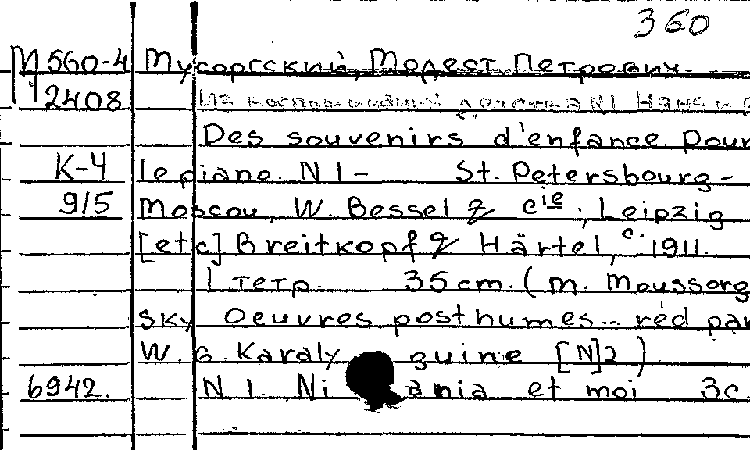 360
М 560-4 Мусоргский, Модест Петрович.
2408 Из воспоминаний детства N1
Des souvenirs d'enfance pour
К-4 le piane. N1- St. Petersbourg-
9/5 Moscou, W. Bessel & cie, Leipzig
[etc] Breitkopf & Härtel, c. 1911.
1 тетр. 35 cm. (M. Moussorg
sky Oeuvres posthumes.. réd par
W. G. Karaty guine [N]2)
6942. N 1. Ni ania et moi 3c